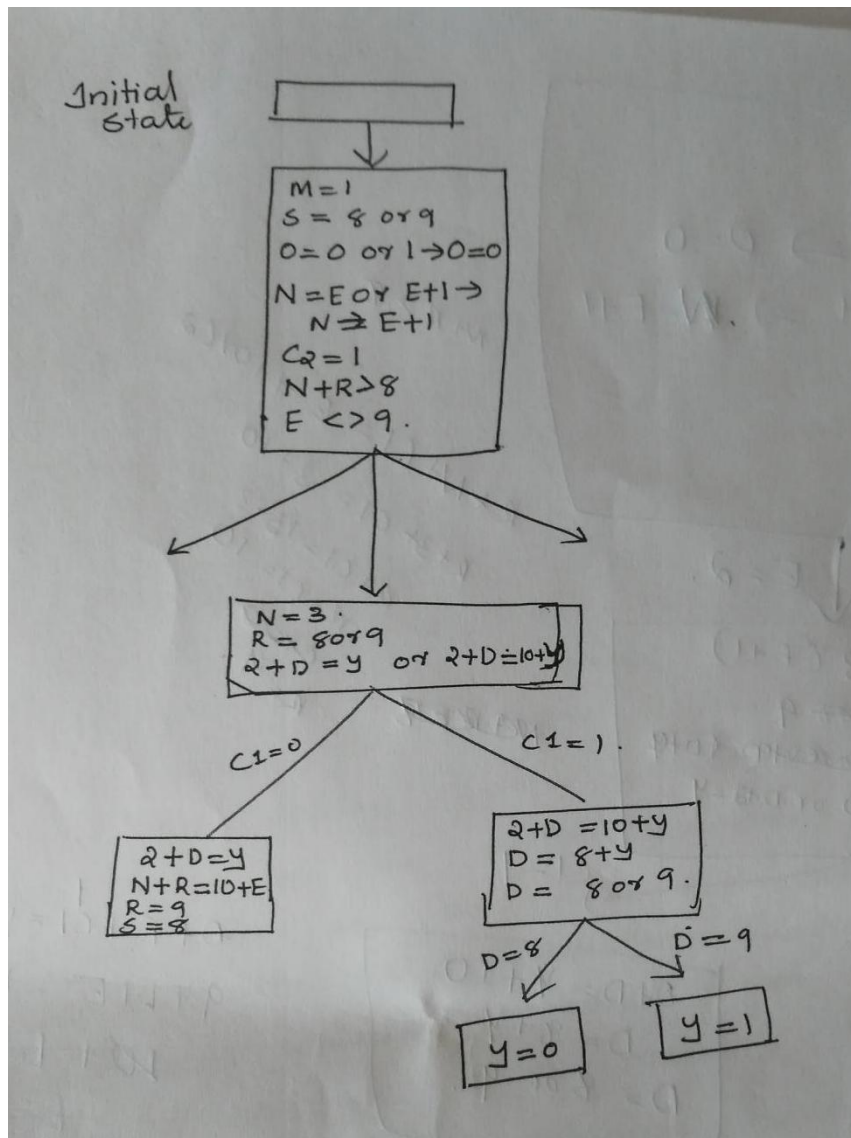 Initial
state
M=1
S = 8 or 9
O=0 or 1→O=0
N=E or E+1→
N → E+1
C2=1
N+R>8
E <> 9.
N=3.
R= 8 or 9
2+D=y or 2+D=10+y
C1=0
C1=1.
2+D=y
N+R=10+E
R=9
S=8
2+D =10+y
D= 8+y
D= 8 or 9.
D=8
D=9
y=0
y=1